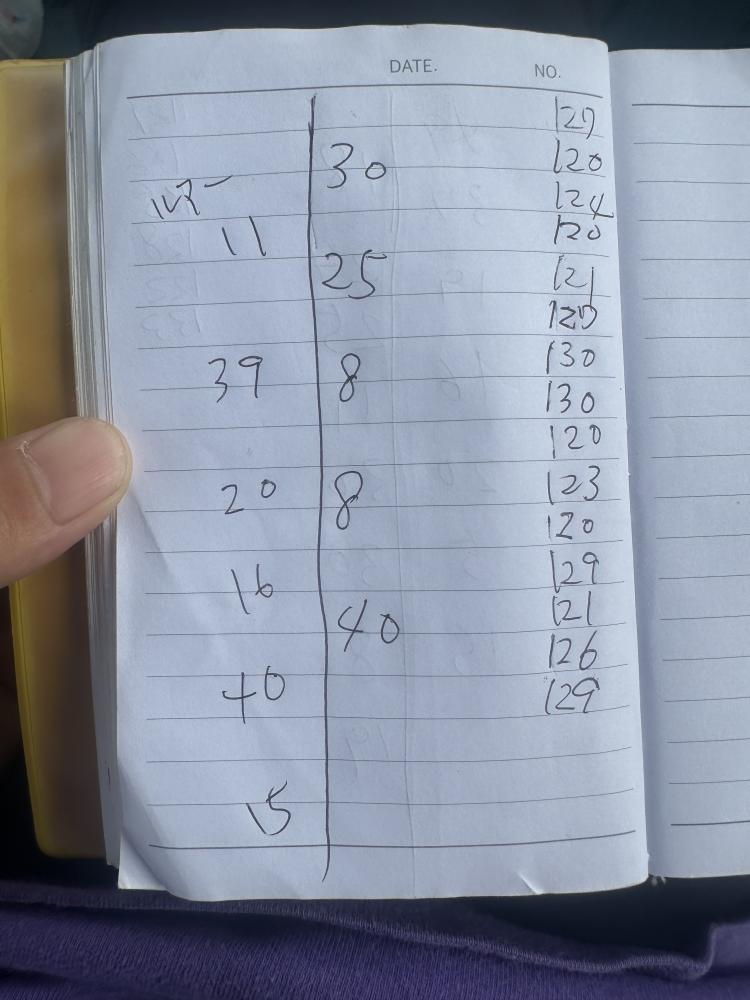 DATE. NO.
129
30 120
124
11 120
25 121
120
39 8 130
130
120
20 8 123
120
16 129
40 121
126
40 129
15